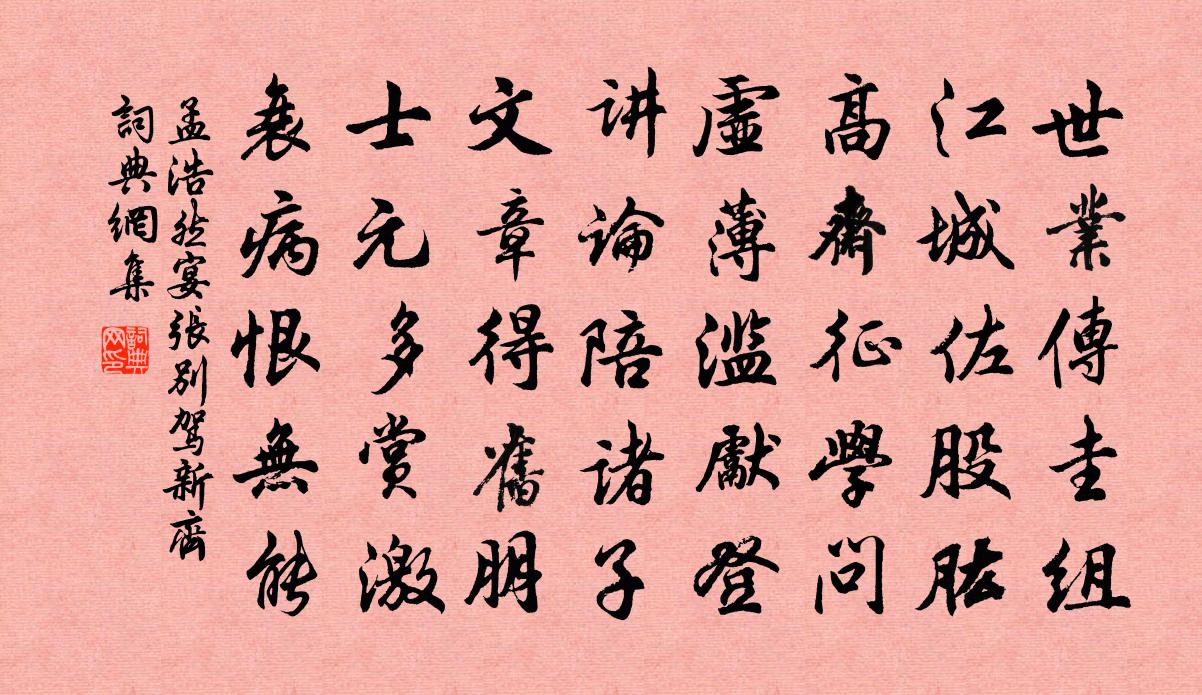 世業傳圭組
江城佐股肱
高齋征學問
虛薄濫獻登
讲論陪諸子
文章得舊朋
士元多賞激
衰病恨無能
孟浩然宴張別駕新齊
詞典網集
詞典网印